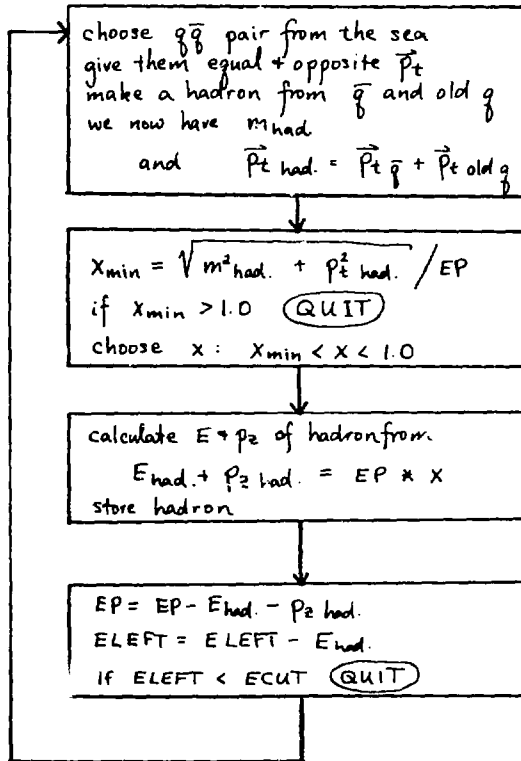 choose q q̄ pair from the sea
give them equal + opposite p⃗t
make a hadron from q̄ and old q
we now have m had
and p⃗t had. = p⃗t q̄ + p⃗t old q
Xmin = √(m² had. + pt² had.) / EP
if Xmin > 1.0 QUIT
choose x : Xmin < x < 1.0
calculate E + pz of hadron from.
E had. + Pz had. = EP * X
store hadron
EP = EP - E had. - Pz had.
ELEFT = ELEFT - E had.
If ELEFT < ECUT QUIT